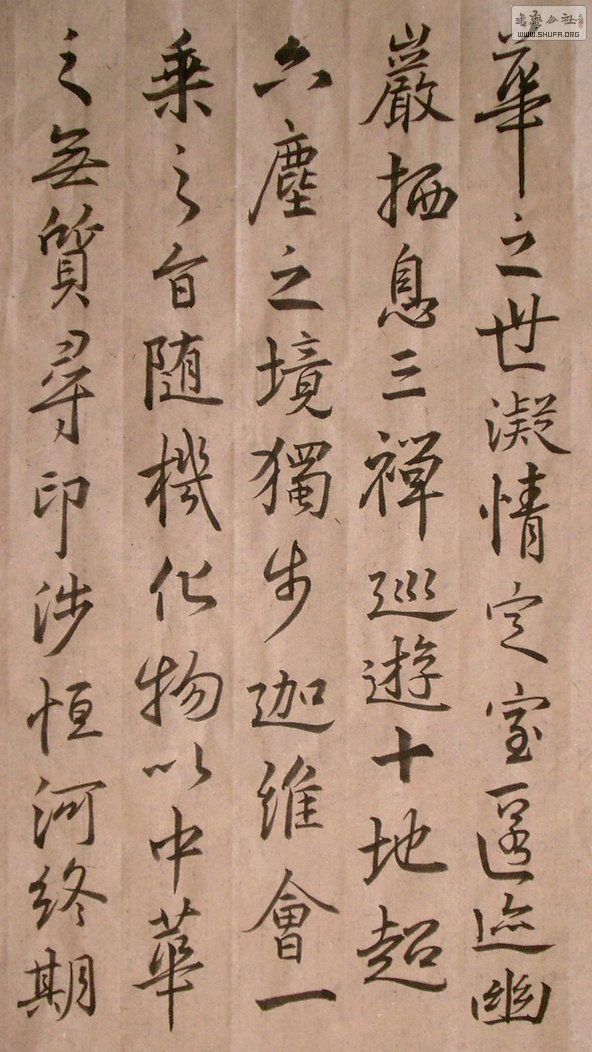 華之世凝情定室匿迹幽
巖栖息三禪巡遊十地超
六塵之境獨步迦維會一
乘之旨随機化物以中華
之無質尋印涉恒河終期
書藝公社
WWW.SHUFA.ORG